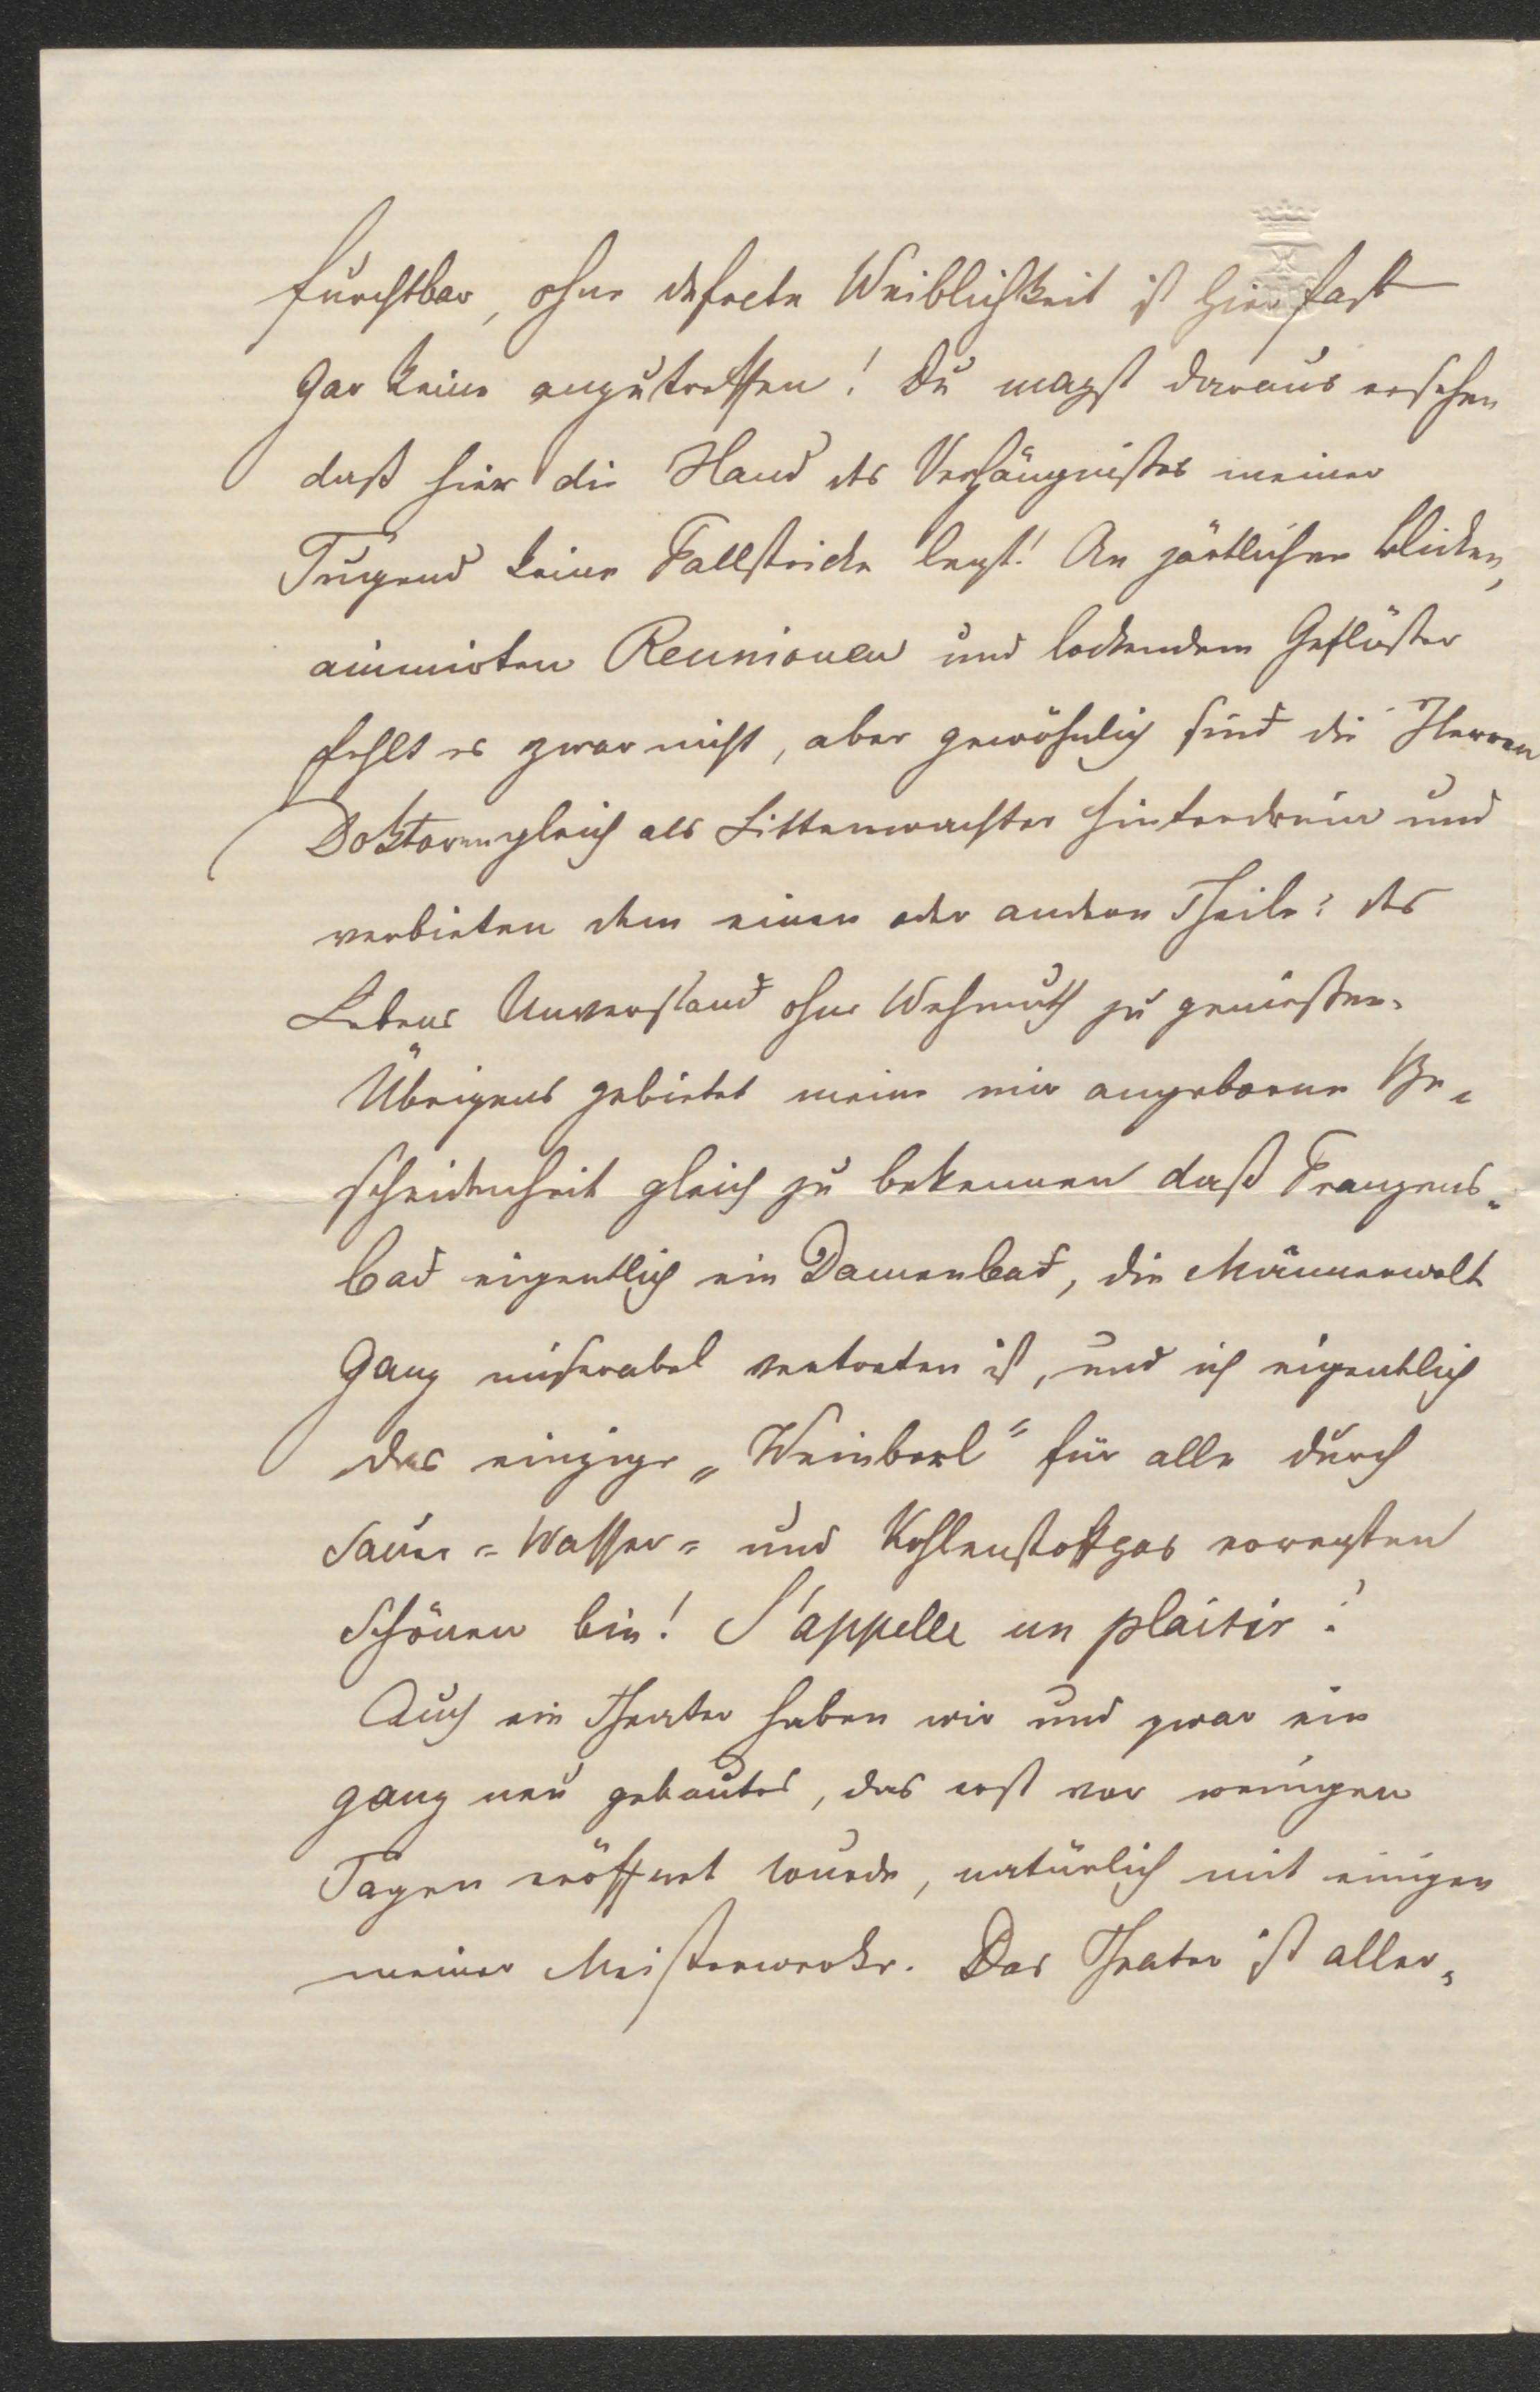 furchtbar, ohne defecte Weiblichkeit ist hier fast
gar keine anzutreffen! Du magst daraus ersehen
daß hier die Hand des Verhängnißes meiner
Tugend keine Fallstricke legt! An zärtlichen Blicken,
animirten Reunionen und lockendem Geflüster
fehlt es zwar nicht, aber gewöhnlich sind die Herren
Doktoren gleich als Sittenwächter hinterdrein und
verbieten dem einen oder andern Theile: des
Lebens Unverstand ohne Wehmuth zu genießen.
Übrigens gebietet meine mir angeborne Be-
scheidenheit gleich zu bekennen daß Franzens-
bad eigentlich ein Damenbad, die Männerwelt
ganz miserabel vertreten ist, und ich eigentlich
das einzige „Weinberl" für alle durch
Sauer- Wasser- und Kohlenstoffgas erregten
Schönen bin! S'appelle un plaisir!
Auch ein Theater haben wir und zwar ein
ganz neu gebautes, das erst vor wenigen
Tagen eröffnet wurde, natürlich mit einigen
meiner Meisterwerke. Das Theater ist aller-